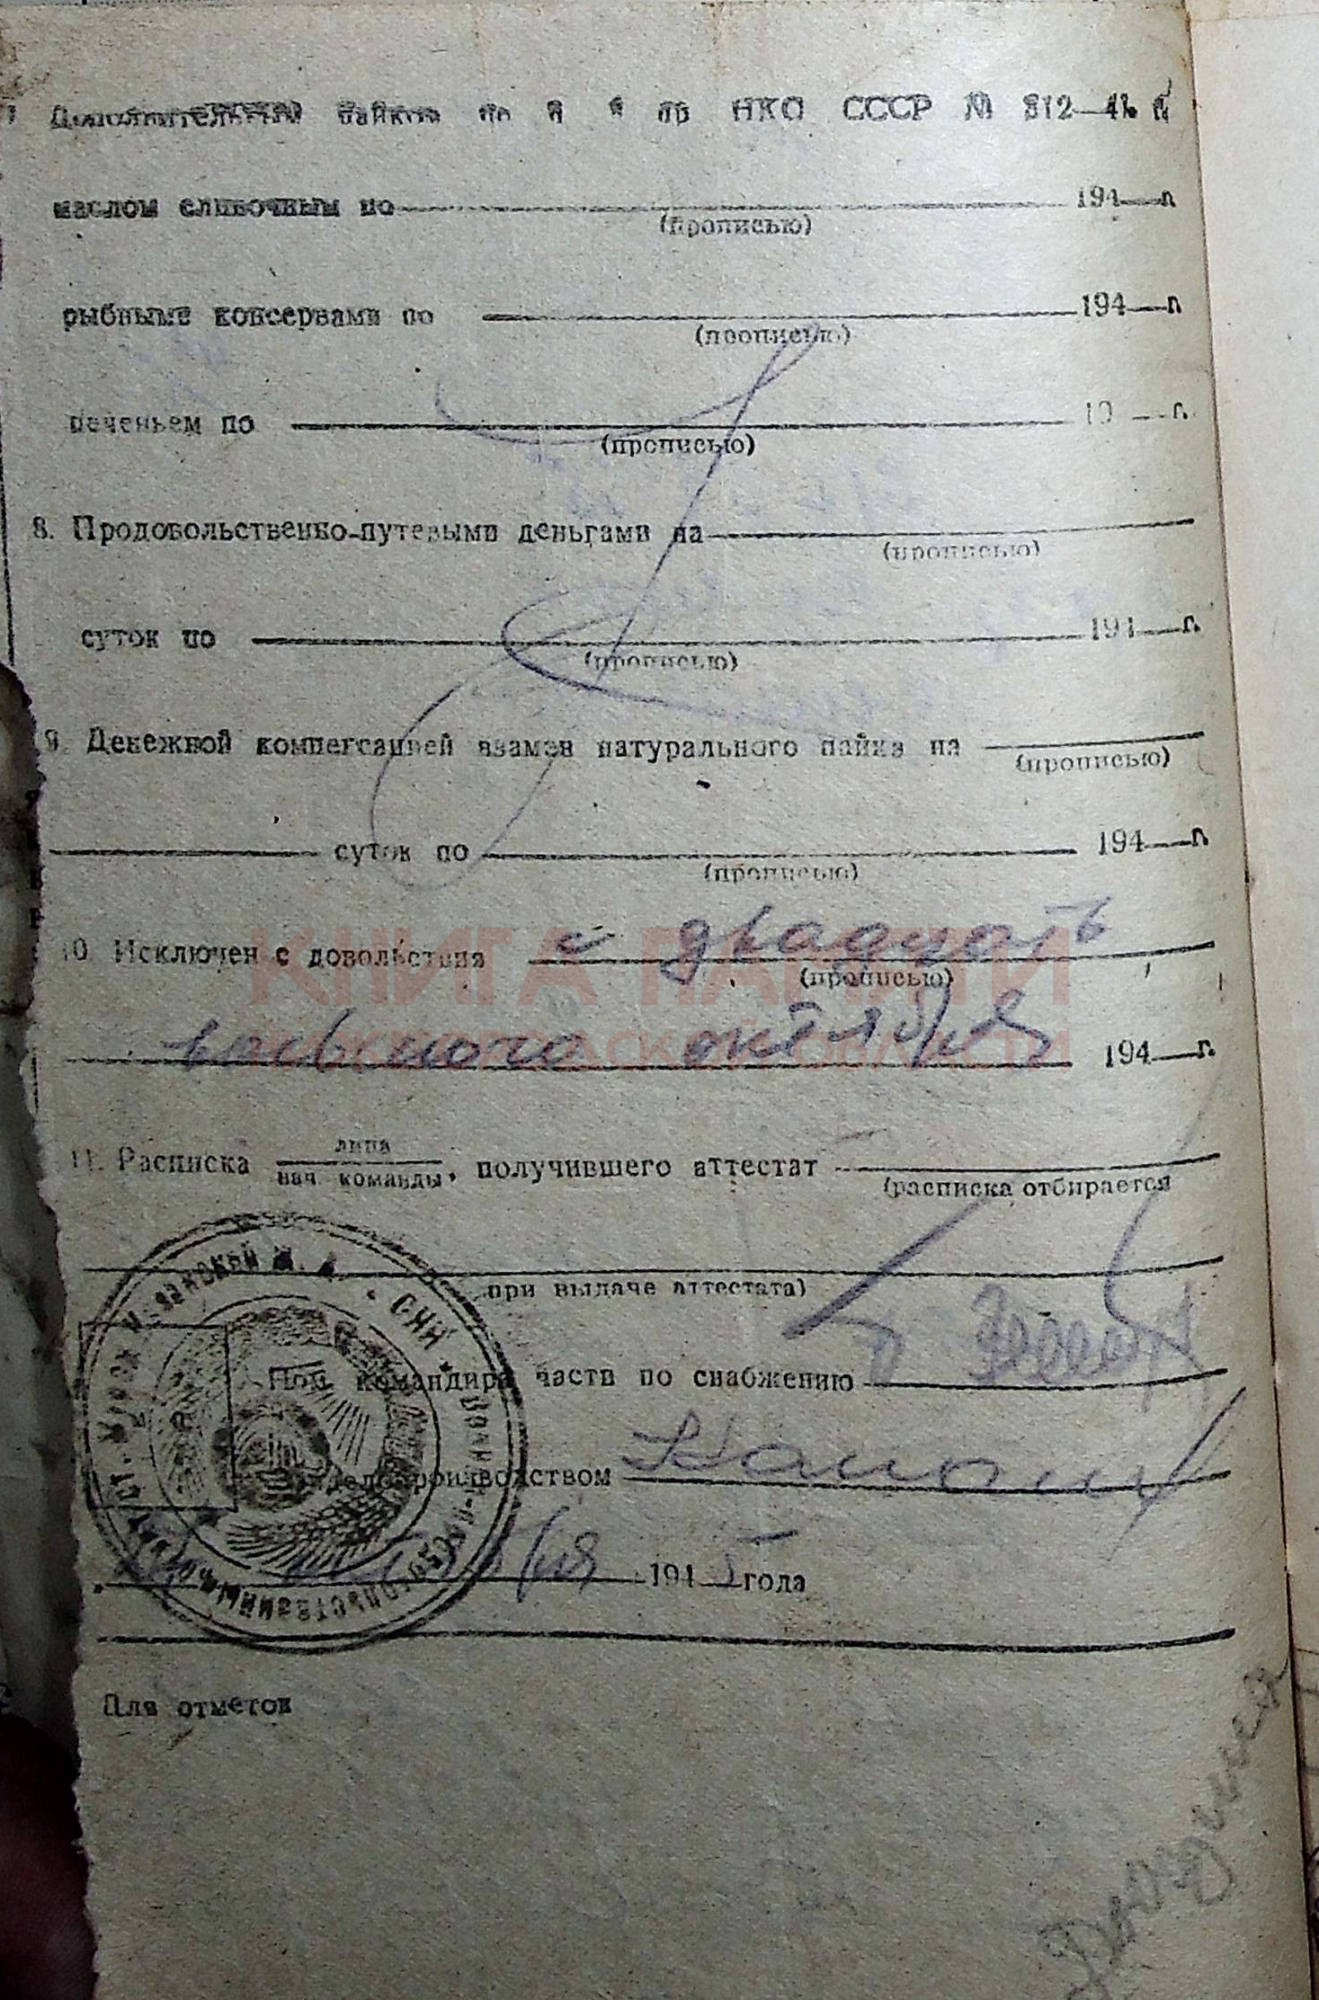 Дополнительным пайком по НКО СССР № 312—41 г.
маслом сливочным по 194 г.
(прописью)
рыбными консервами по 194 г.
(прописью)
печеньем по 19 г.
(прописью)
8. Продовольственно-путевыми деньгами на
(прописью)
суток по 194 г.
(прописью)
9. Денежной компенсацией взамен натурального пайка на
(прописью)
суток по 194 г.
(прописью)
10. Исключен с довольствия с двадцать
(прописью)
восьмого октября 194 г.
КНИГА ПАМЯТИ
НИЖЕГОРОДСКОЙ ОБЛАСТИ
11. Расписка лица
нач. команды, получившего аттестат
(расписка отбирается
при выдаче аттестата)
Пом. командира части по снабжению
делопроизводством
октября 1945 года
Для отметок